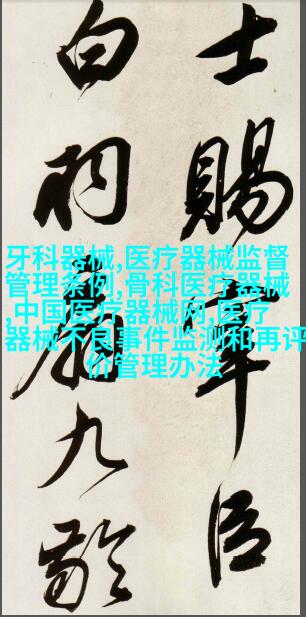 士賜宰臣
白羽扇九齡
牙科器械,医疗器械监督
管理条例,骨科医疗器械
,中国医疗器械网,医疗
器械不良事件监测和再评
价管理办法